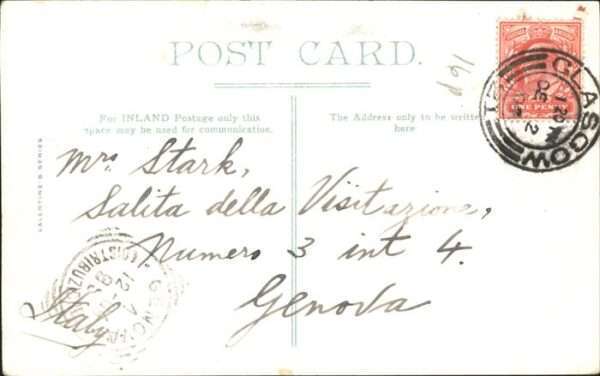 POST CARD.
16p
For INLAND Postage only this
space may be used for communication.
The Address only to be written
here
VALENTINE'S SERIES
ONE PENNY
GLASGOW
Mrs. Stark,
Salita della Visitazione,
Numero 3 int 4.
Genova
Italy
GENOVA
DISTRIBUZ